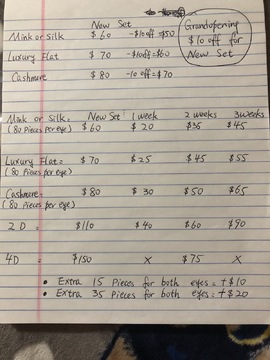 New Set
Mink or Silk $60 -$10off=$50
Luxury Flat $70 -$10off=$60
Cashmere $80 -10 off=$70
Grandopening
$10 off for
New Set
Mink or Silk: New Set 1 week 2 weeks 3 weeks
(80 Pieces per eye) $60 $20 $35 $45
Luxury Flat= $70 $25 $45 $55
(80 Pieces per eye)
Cashmere= $80 $30 $50 $65
(80 Pieces per eye)
2D = $110 $40 $60 $90
4D = $150 X $75 X
• Extra 15 Pieces for both eyes=+$10
• Extra 35 Pieces for both eyes=+$20